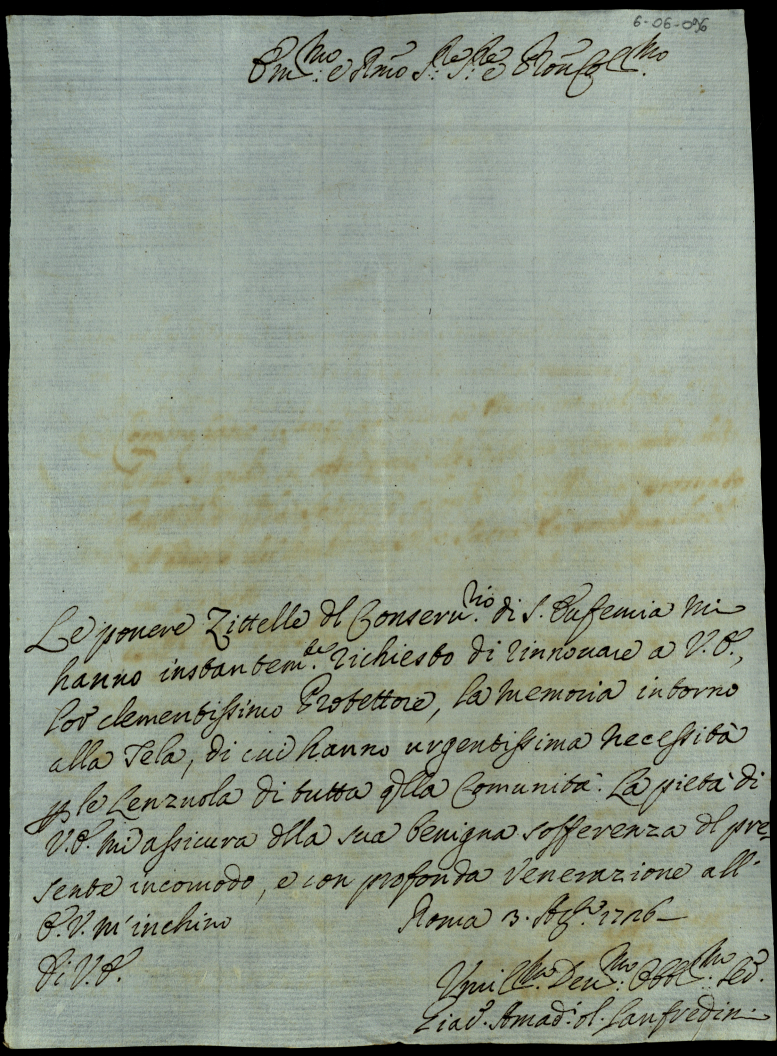 6-06-096
Em.mo e Rmo Sre Sre e Pron Col.mo
Le povere Zittelle dl Conserv.rio di S. Eufemia mi
hanno instantem.te richiesto di rinnovare a V.E.,
lor clementissimo Protettore, la memoria intorno
alla Tela, di cui hanno urgentissima necessità
p le Lenzuola di tutta qlla Comunità. La pietà di
V.E. mi assicura dlla sua benigna sofferenza dl pre=
sente incomodo, e con profonda venerazione all'
E.V. m'inchino Roma 3. 1726
di V.E.
Umil.mo Dev.mo Obbl.mo Ser.
Giac. Amad. Lanfredini